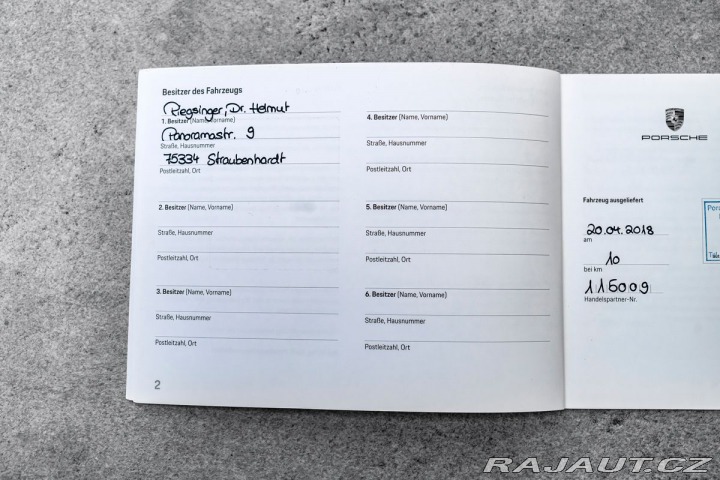 Besitzer des Fahrzeugs
Riegsinger, Dr. Helmut
1. Besitzer (Name, Vorname)
Panoramastr. 9
Straße, Hausnummer
75334 Straubenhardt
Postleitzahl, Ort
2. Besitzer (Name, Vorname)
Straße, Hausnummer
Postleitzahl, Ort
3. Besitzer (Name, Vorname)
Straße, Hausnummer
Postleitzahl, Ort
2
4. Besitzer (Name, Vorname)
Straße, Hausnummer
Postleitzahl, Ort
5. Besitzer (Name, Vorname)
Straße, Hausnummer
Postleitzahl, Ort
6. Besitzer (Name, Vorname)
Straße, Hausnummer
Postleitzahl, Ort
PORSCHE
Fahrzeug ausgeliefert
20.04.2018
am
10
bei km
115009
Handelspartner-Nr.
RAJAUT.CZ